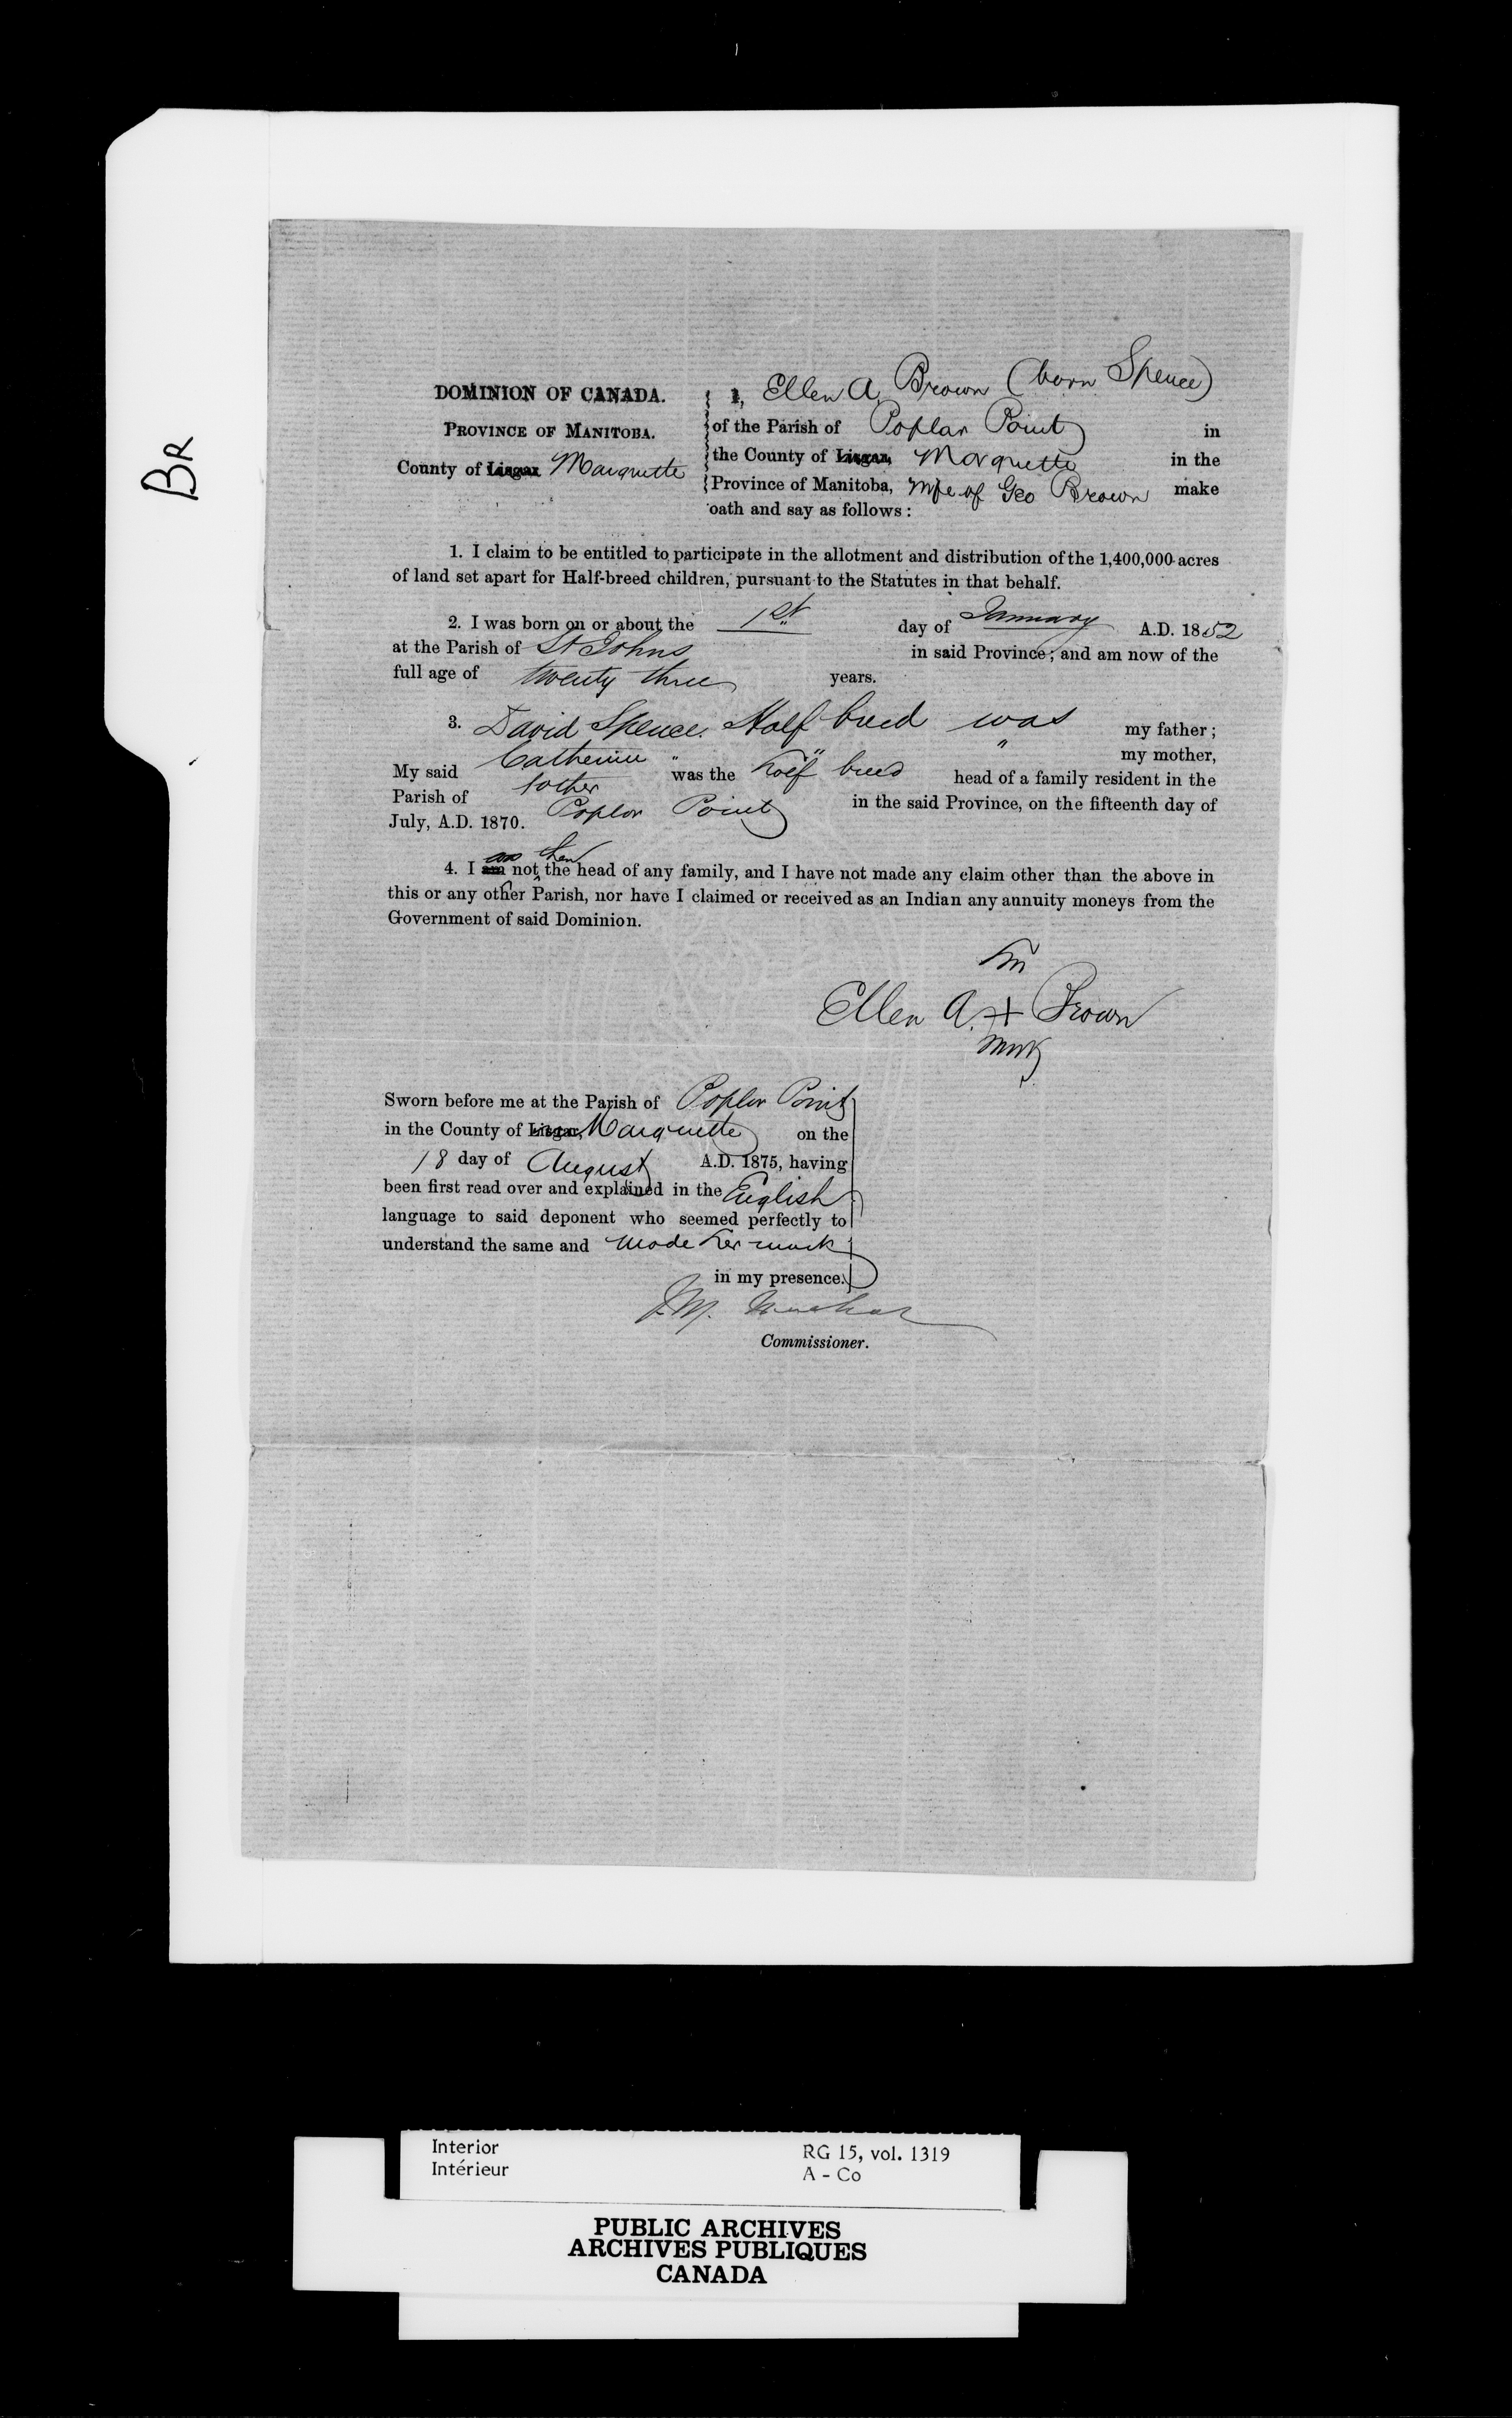 BR
DOMINION OF CANADA.
PROVINCE OF MANITOBA.
County of Lisgar Marquette
I, Ellen A. Brown (born Spence)
of the Parish of Poplar Point in
the County of Lisgar, Marquette in the
Province of Manitoba, Wife of Geo Brown make
oath and say as follows:
1. I claim to be entitled to participate in the allotment and distribution of the 1,400,000 acres
of land set apart for Half-breed children, pursuant to the Statutes in that behalf.
2. I was born on or about the 1st day of January A.D. 1852
at the Parish of St Johns in said Province; and am now of the
full age of twenty three years.
3. David Spence. Half breed was my father;
Catherine " " " my mother,
My said father was the half breed head of a family resident in the
Parish of Poplar Point in the said Province, on the fifteenth day of
July, A.D. 1870.
was then
4. I am not the head of any family, and I have not made any claim other than the above in
this or any other Parish, nor have I claimed or received as an Indian any annuity moneys from the
Government of said Dominion.
her
Ellen A. + Brown
mark
Sworn before me at the Parish of Poplar Point
in the County of Lisgar, Marquette on the
18 day of August A.D. 1875, having
been first read over and explained in the English
language to said deponent who seemed perfectly to
understand the same and made her mark
in my presence.
J.M. Machar
Commissioner.
Interior
Intérieur
RG 15, vol. 1319
A - Co
PUBLIC ARCHIVES
ARCHIVES PUBLIQUES
CANADA